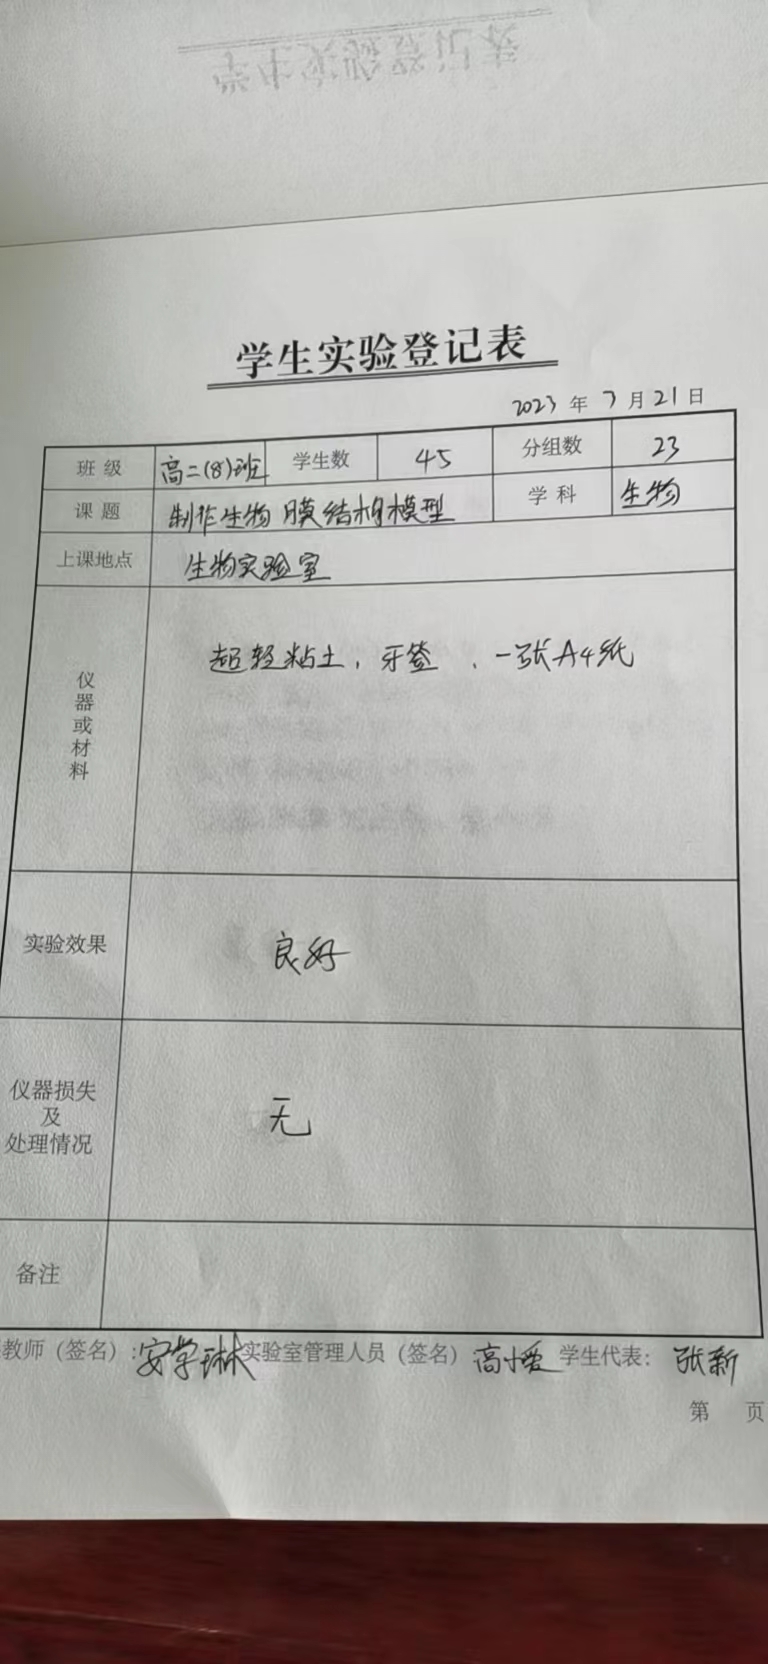 学生实验登记表
2023 年 3 月 21 日
班 级 高二(8)班 学生数 45 分组数 23
课 题 制作生物膜结构模型 学 科 生物
上课地点 生物实验室
仪器或材料 超轻粘土、牙签、一张A4纸
实验效果 良好
仪器损失
及
处理情况 无
备注
教师（签名）：安学琳 实验室管理人员（签名） 高 学生代表： 张新
第 页